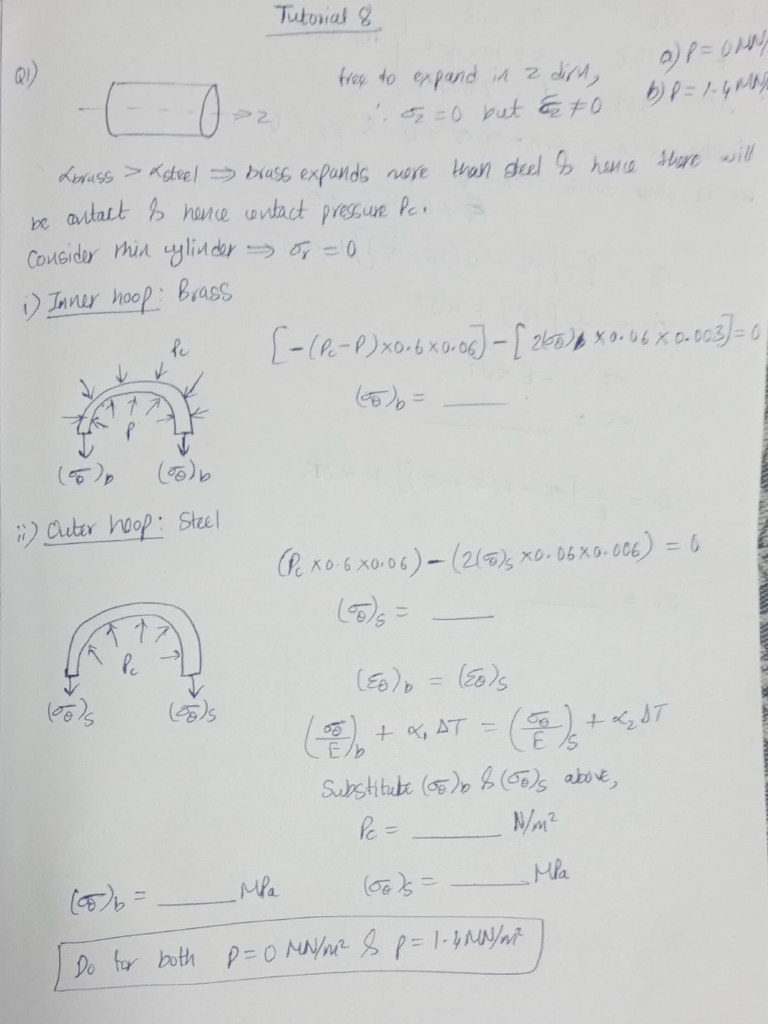 Tutorial 8
Q1)
free to expand in z dirn,
∴ σz = 0 but εz ≠ 0
a) P = 0 MN/
b) P = 1.4 MN/
→ z
αbrass > αsteel ⇒ brass expands more than steel & hence there will
be contact & hence contact pressure Pc.
Consider thin cylinder ⇒ σr = 0
i) Inner hoop: Brass
[-(Pc-P)×0.6×0.06] - [2(σθ)b × 0.06 × 0.003] = 0
(σθ)b = ____
Pc
P
(σθ)b (σθ)b
ii) Outer hoop: Steel
(Pc × 0.6 × 0.06) - (2(σθ)s × 0.06 × 0.006) = 0
(σθ)s = ____
Pc
(σθ)s (σθ)s
(εθ)b = (εθ)s
(σθ/E)b + α1 ΔT = (σθ/E)s + α2 ΔT
Substitute (σθ)b & (σθ)s above,
Pc = ____ N/m²
(σθ)b = ____ MPa (σθ)s = ____ MPa
Do for both P = 0 MN/m² & P = 1.4 MN/m²